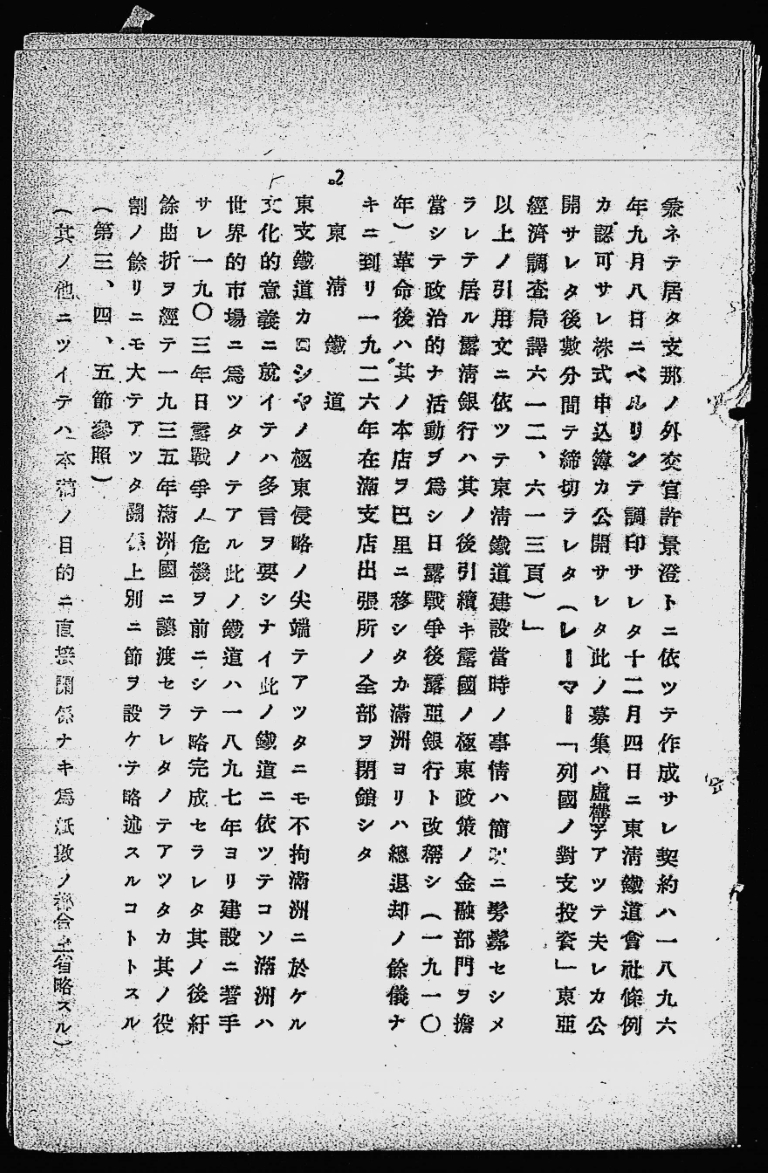 兼ネテ居タ支那ノ外交官許景澄トニ依ツテ作成サレ契約ハ一八九六
年九月八日ニベルリンテ調印サレタ十二月四日ニ東淸鐵道會社條例
カ認可サレ株式申込簿カ公開サレタ此ノ募集ハ虛構テアツテ夫レカ公
開サレタ後數分間テ締切ラレタ(レーマー「列國ノ對支投資」東亞
經濟調査局譯六一二、六一三頁)」
以上ノ引用文ニ依ツテ東淸鐵道建設當時ノ事情ハ簡單ニ髣髴セシメ
ラレテ居ル露淸銀行ハ其ノ後引續キ露國ノ極東政策ノ金融部門ヲ擔
當シテ政治的ナ活動ヲ爲シ日露戰爭後露亞銀行ト改稱シ(一九一〇
年)革命後ハ其ノ本店ヲ巴里ニ移シタカ滿洲ヨリハ總退却ノ餘儀ナ
キニ到リ一九二六年在滿支店出張所ノ全部ヲ閉鎖シタ
2 東淸鐵道
東支鐵道カロシヤノ極東侵略ノ尖端テアツタニモ不拘滿洲ニ於ケル
文化的意義ニ就イテハ多言ヲ要シナイ此ノ鐵道ニ依ツテコソ滿洲ハ
世界的市場ニ爲ツタノテアル此ノ鐵道ハ一八九七年ヨリ建設ニ着手
サレ一九〇三年日露戰爭ノ危機ヲ前ニシテ略完成セラレタ其ノ後紆
餘曲折ヲ經テ一九三五年滿洲國ニ讓渡セラレタノテアツタカ其ノ役
割ノ餘リニモ大テアツタ關係上別ニ節ヲ設ケテ略述スルコトトスル
(第三、四、五節參照)
(其ノ他ニツイテハ本稿ノ目的ニ直接關係ナキ爲紙數ノ都合上省略スル)